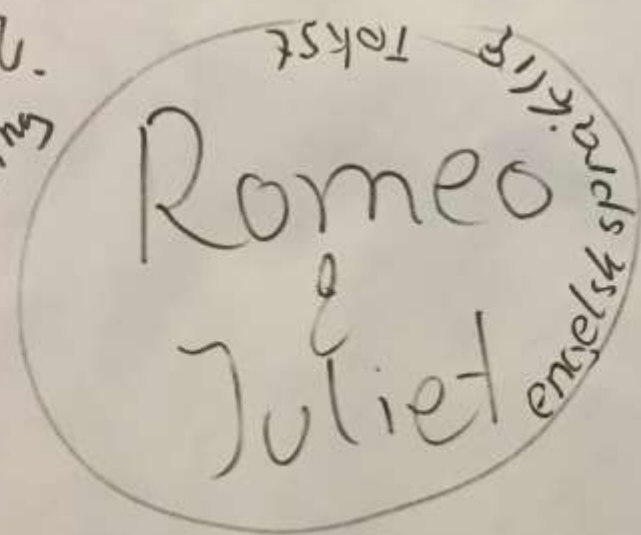 Romeo
&
Juliet
engelsk språklig
tekst